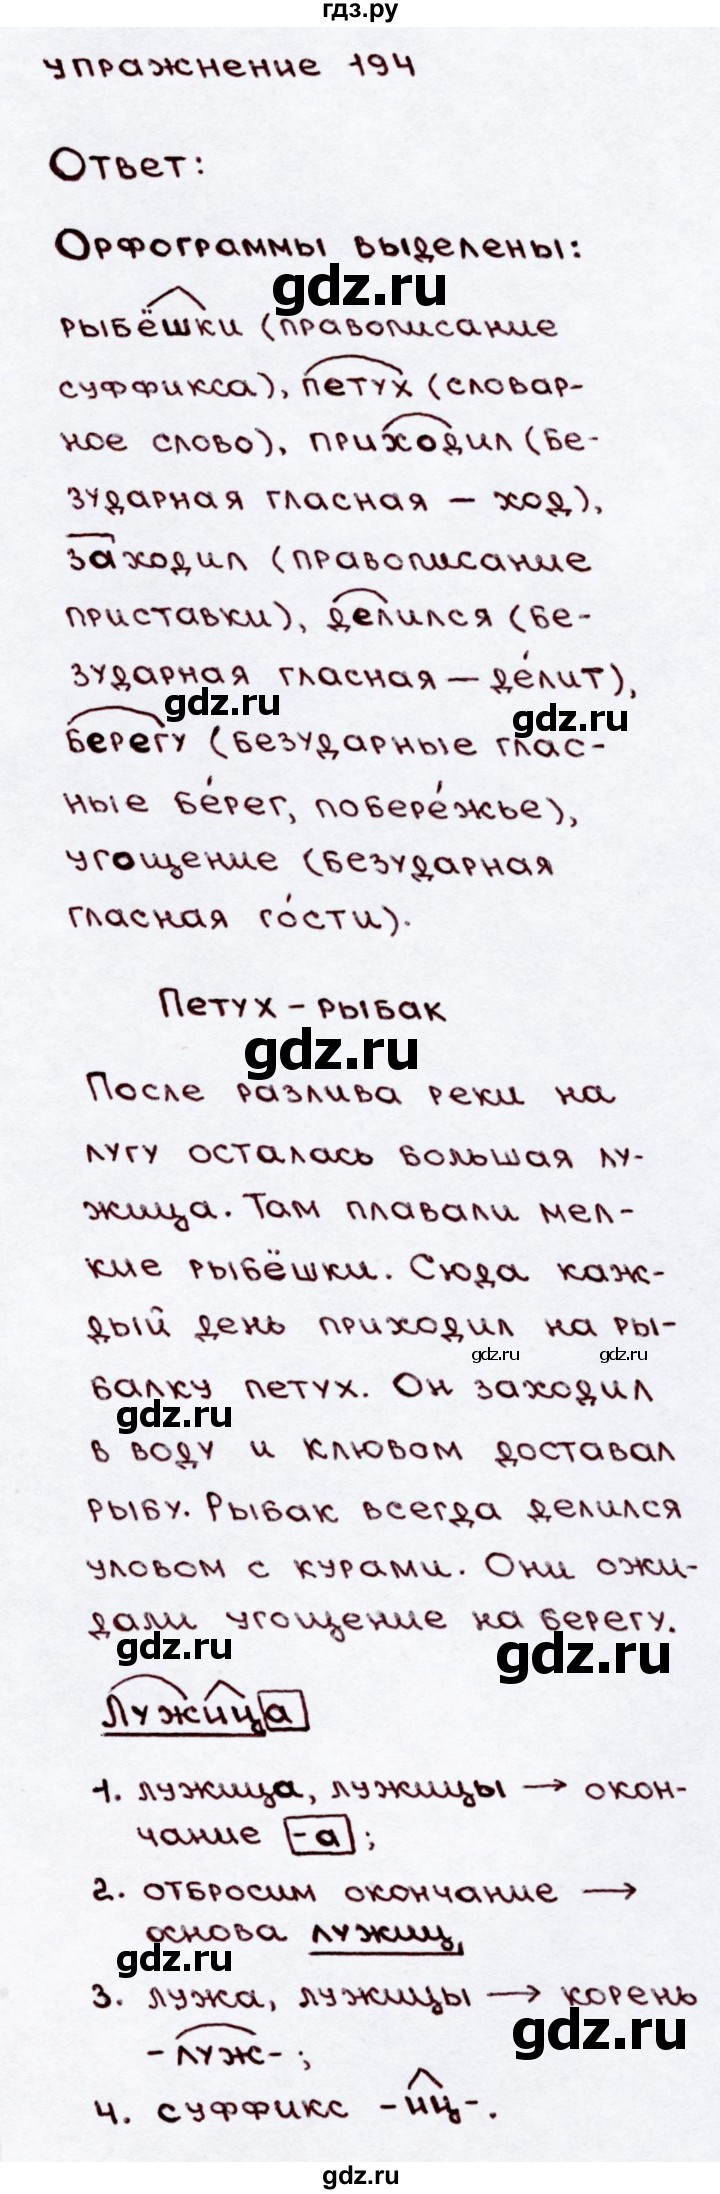 гдз.ру
упражнение 194
Ответ:
Орфограммы выделены:
gdz.ru
рыбёшки (правописание
суффикса), петух (словар-
ное слово), приходил (бе-
зударная гласная – ход),
заходил (правописание
приставки), делился (бе-
зударная гласная – де́лит),
gdz.ru
gdz.ru
берегу (безударные глас-
ные бе́рег, побере́жье),
угощение (безударная
гласная го́сти).
Петух – рыбак
gdz.ru
После разлива реки на
лугу осталась большая лу-
жица. Там плавали мел-
кие рыбёшки. Сюда каж-
дый день приходил на ры-
gdz.ru gdz.ru
балку петух. Он заходил
gdz.ru
в воду и клювом доставал
рыбу. Рыбак всегда делился
уловом с курами. Они ожи-
дали угощение на берегу.
gdz.ru
gdz.ru
Лужица
1. лужица, лужицы → окон-
чание -а ;
2. отбросим окончание →
основа лужиц
gdz.ru
3. лужа, лужицы → корень
gdz.ru
-луж- ;
4. суффикс -иц-.
gdz.ru